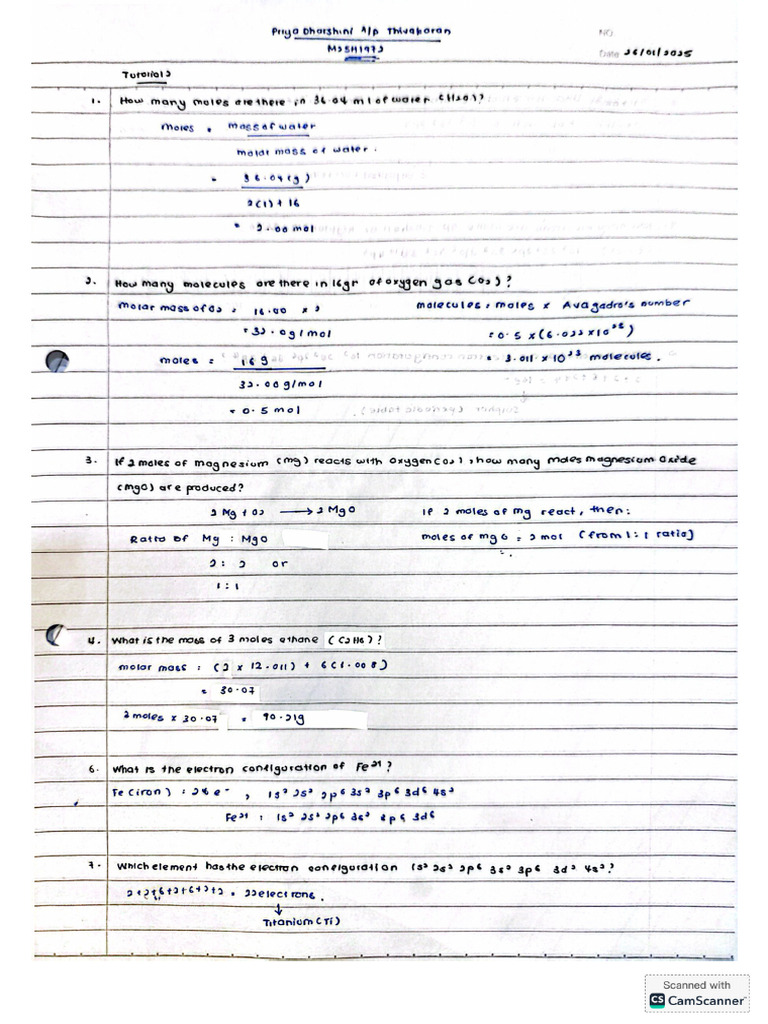 Priya Dharshini A/P Thivakaran
NO.
M25H1972
Date 26/01/2025
Tutorial 2
1. How many moles are there in 36.04 ml of water (H2O)?
Moles = mass of water
molar mass of water.
= 36.04 (g)
2(1) + 16
= 2.00 mol
2. How many molecules are there in 16gr of oxygen gas (O2)?
Molar mass of O2 = 16.00 x 2
= 32.0g/mol
moles = 16 g
32.00g/mol
= 0.5 mol
molecules = moles x Avagadro's number
= 0.5 x (6.022 x 10²³)
= 3.011 x 10²³ molecules.
3. If 2 moles of magnesium (mg) reacts with oxygen (O2), how many moles magnesium oxide
(mgO) are produced?
2 Mg + O2 → 2 MgO
Ratio of Mg : MgO
2 : 2 or
1 : 1
If 2 moles of mg react, then:
moles of mgO = 2 mol (from 1:1 ratio)
4. What is the mass of 3 moles ethane (C2H6)?
molar mass = (2 x 12.011) + 6(1.008)
= 30.07
3 moles x 30.07 = 90.21g
6. What is the electron configuration of Fe²⁺?
Fe (iron) : 26 e⁻, 1s² 2s² 2p⁶ 3s² 3p⁶ 3d⁶ 4s²
Fe²⁺ : 1s² 2s² 2p⁶ 3s² 3p⁶ 3d⁶
7. Which element has the electron configuration 1s² 2s² 2p⁶ 3s² 3p⁶ 3d² 4s²?
2+2+6+2+6+2+2 = 22electrons.
↓
Titanium (Ti)
Scanned with
CS CamScanner